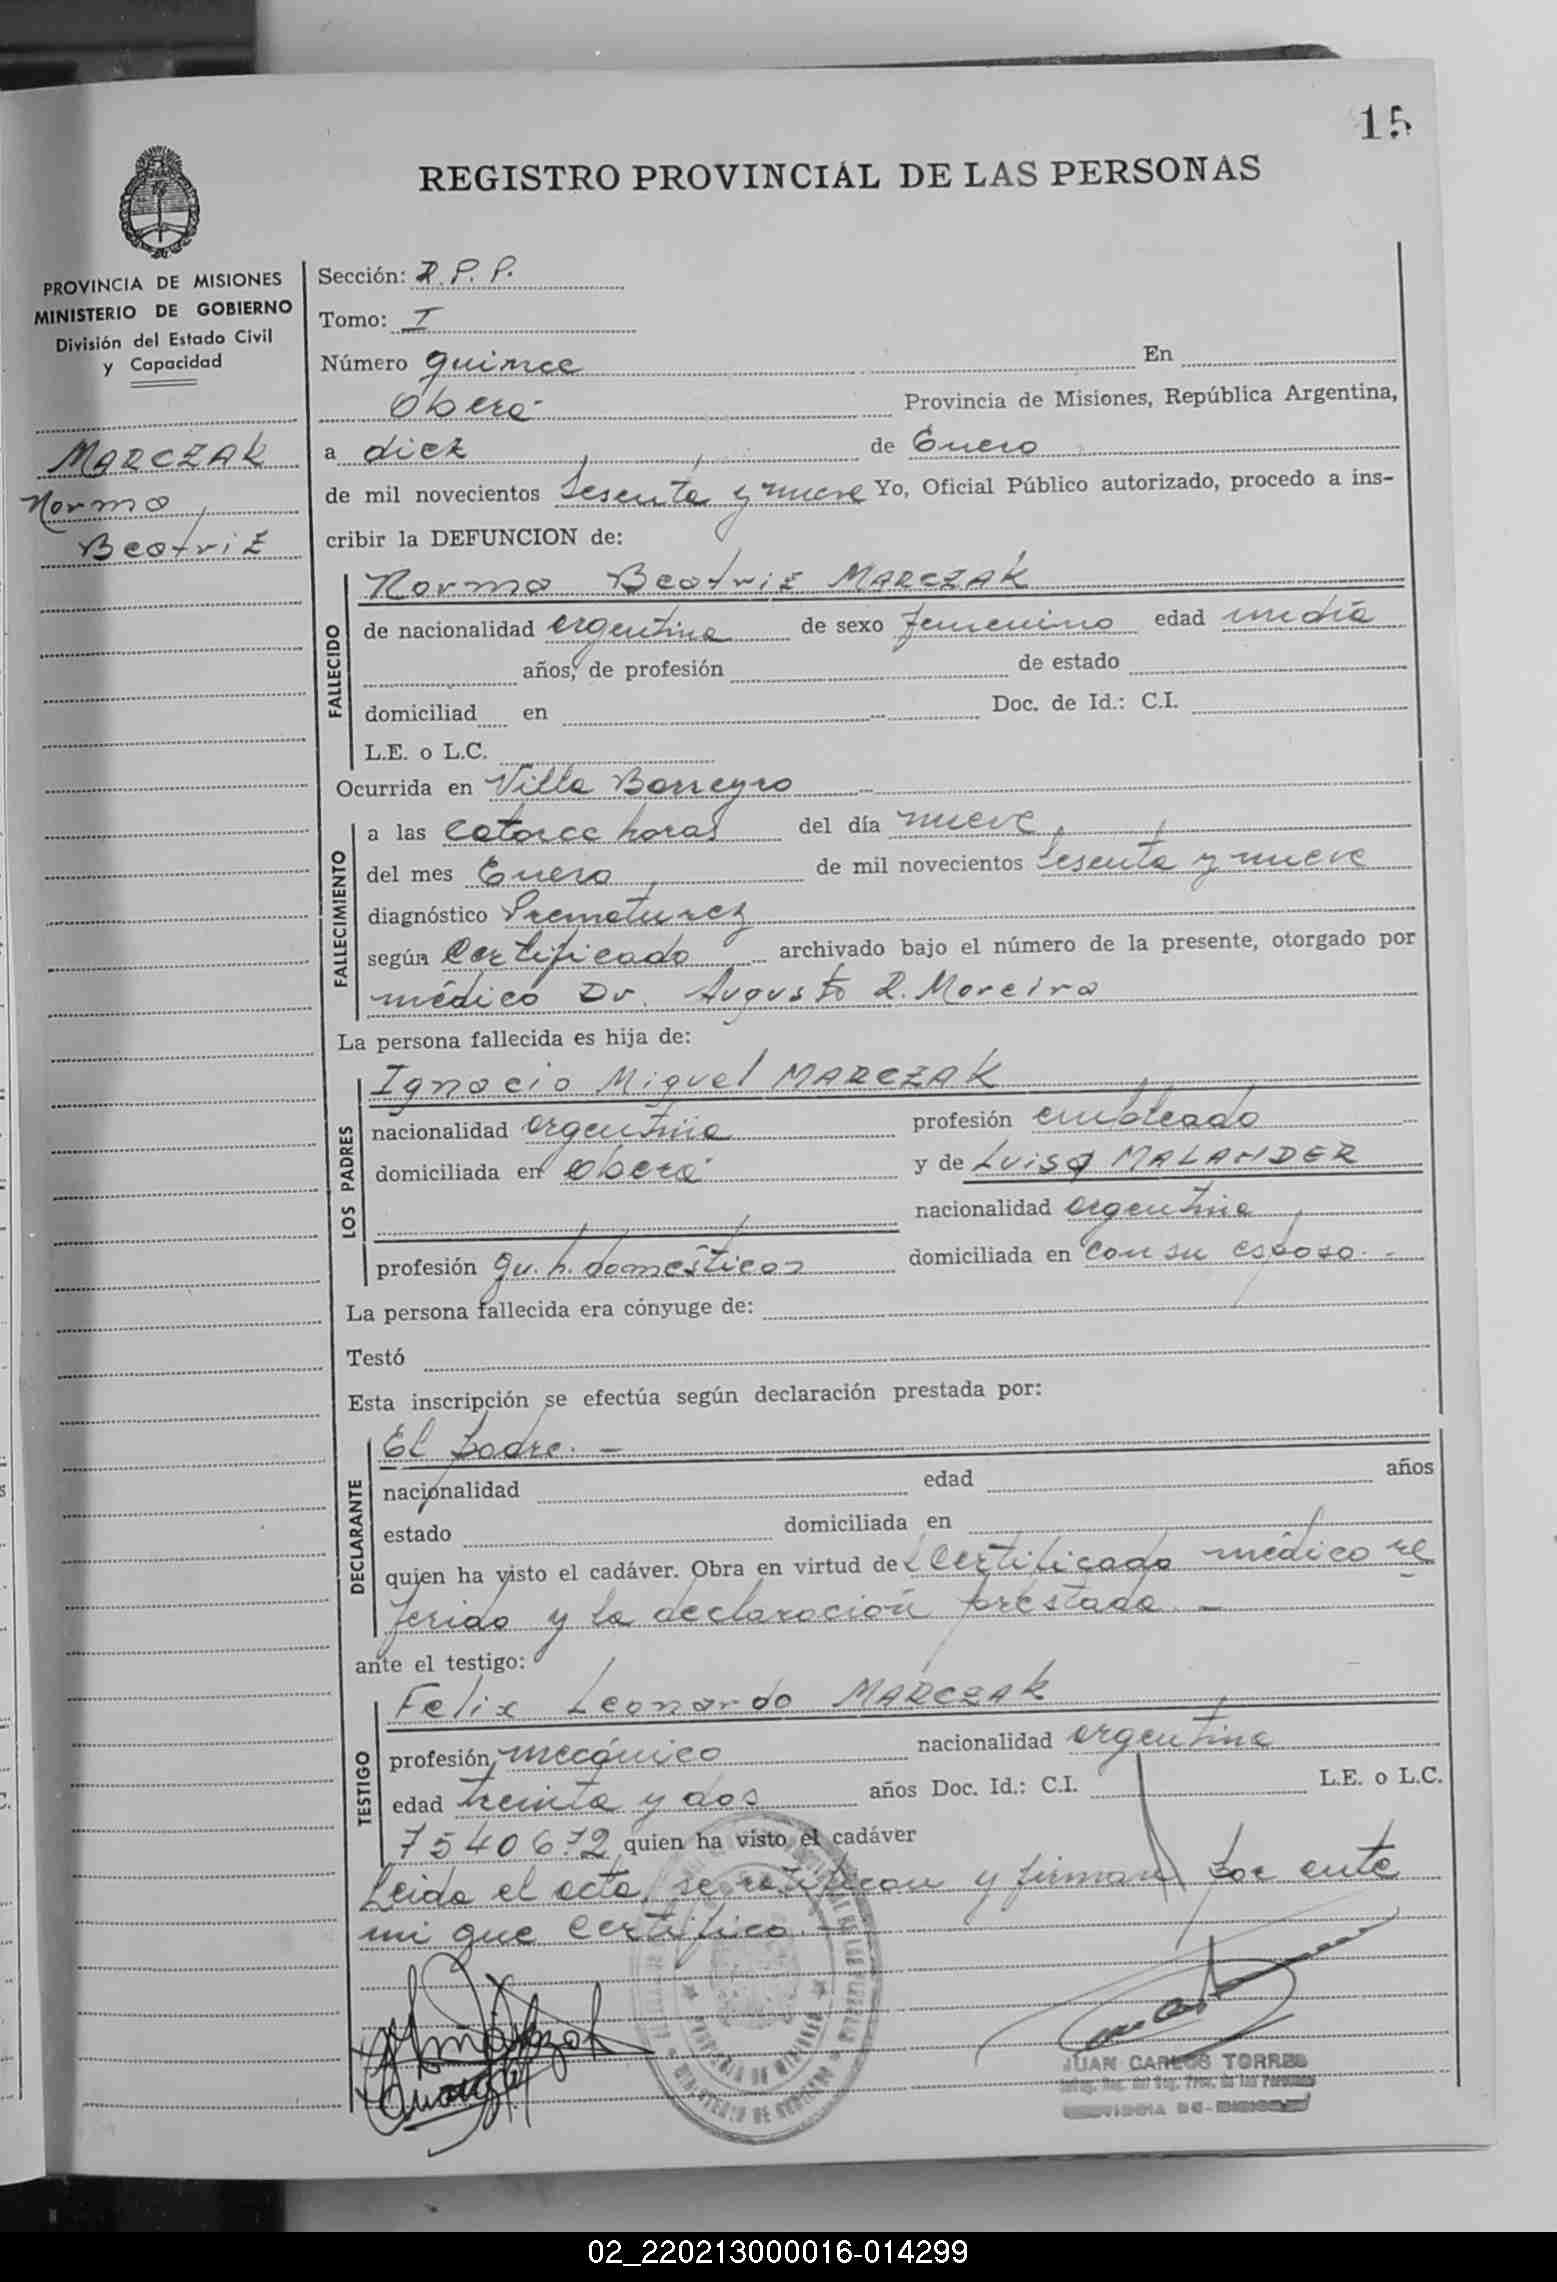 15
REGISTRO PROVINCIAL DE LAS PERSONAS
PROVINCIA DE MISIONES
MINISTERIO DE GOBIERNO
División del Estado Civil
y Capacidad
MARCZAK
Norma
Beatriz
Sección: R.P.P.
Tomo: I
Número quince En
Oberá Provincia de Misiones, República Argentina,
a diez de Enero
de mil novecientos Sesenta y nueve Yo, Oficial Público autorizado, procedo a ins-
cribir la DEFUNCION de:
FALLECIDO
Norma Beatriz MARCZAK
de nacionalidad argentina de sexo femenino edad un día
años, de profesión de estado
domiciliad en Doc. de Id.: C.I.
L.E. o L.C.
Ocurrida en Villa Barreyro
FALLECIMIENTO
a las Catorce horas del día nueve
del mes Enero de mil novecientos Sesenta y nueve
diagnóstico Prematurez
según Certificado archivado bajo el número de la presente, otorgado por
médico Dr. Augusto R. Moreira
La persona fallecida es hija de:
LOS PADRES
Ignacio Miguel MARCZAK
nacionalidad argentina profesión empleado
domiciliada en Oberá y de Luisa MALANDER
nacionalidad argentina
profesión qu. h. domésticos domiciliada en con su esposo. -
La persona fallecida era cónyuge de:
Testó
Esta inscripción se efectúa según declaración prestada por:
DECLARANTE
El padre. -
nacionalidad edad años
estado domiciliada en
quien ha visto el cadáver. Obra en virtud del Certificado médico re
ferido y la declaración prestada. -
ante el testigo:
TESTIGO
Felix Leonardo MARCZAK
profesión mecánico nacionalidad argentina
edad treinta y dos años Doc. Id.: C.I. L.E. o L.C.
7540672 quien ha visto el cadáver
Leida el acta, se ratifican y firman por ante
mi que certifico. -
JUAN CARLOS TORRES
02_220213000016-014299